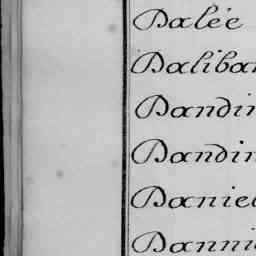 Dalée
Daliba
Dandin
Dandin
Daniel
Danni